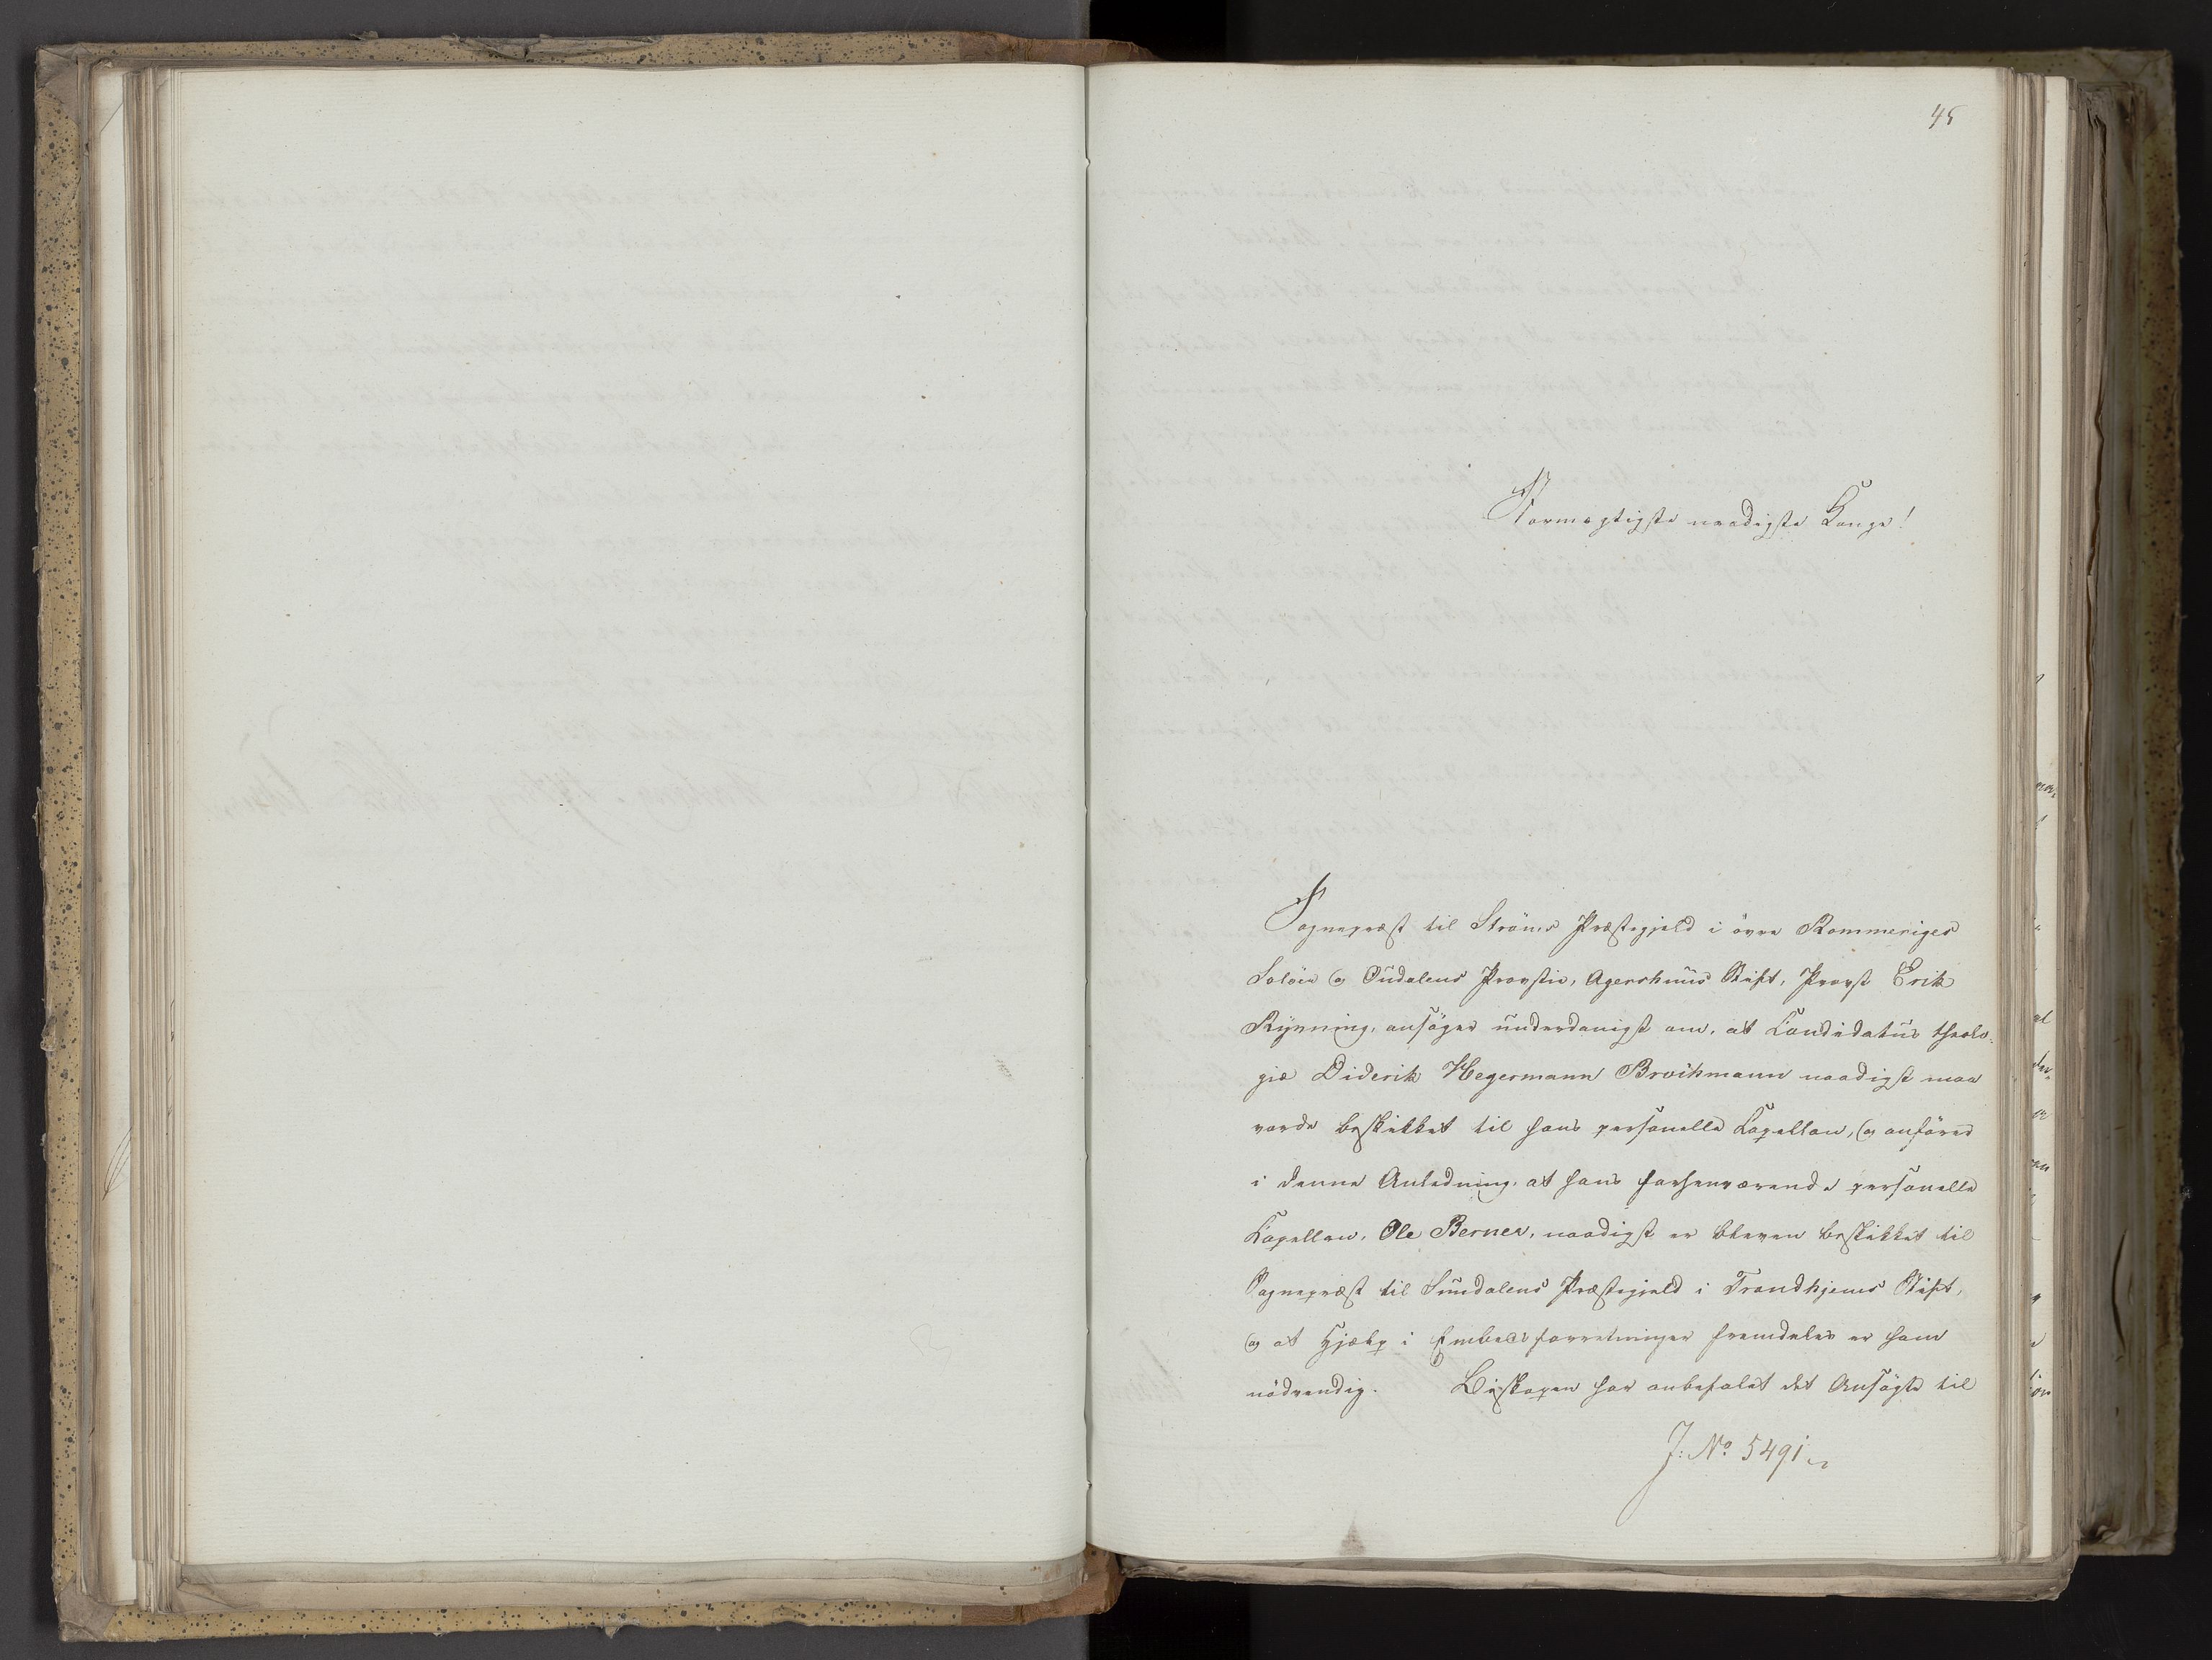 45
Stormægtigste naadigste Konge!
Sognepræst til Ströms Præstegjeld i övre Rommeriges
Solöer og Oudalens Provstie, Agershuus Stift, Provst Erik
Rynning, ansöger underdanigst om, at Candidatus theolo-
giæ Diderik Hegermann Brochmann naadigst maa
vorde beskikket til hans personelle Capellan, og anförer
i denne Anledning, at hans forhenværende personelle
Capellan, Ole Berner, naadigst er bleven beskikket til
Sognepræst til Sundalens Præstegjeld i Trondhjems Stift,
og at Hjælp i Embedsforretninger fremdeles er ham
nödvendig. Biskopen har anbefalet det Ansögte til
J: No 5491